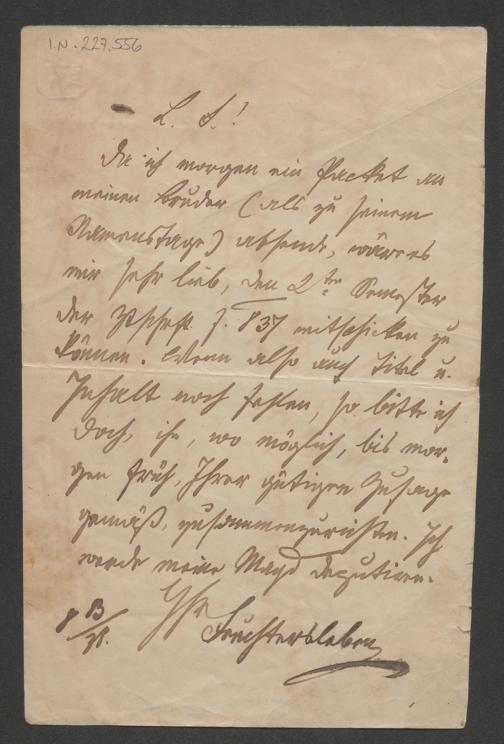 I.N. 227.556
L. S.!
Da ich morgen ein Packet an
meinen Bruder (als zu seinem
Namenstage) absende, wäre es
mir sehr lieb, den 2ten Semester
der Ztschft. J. 837 mitschicken zu
können. Wenn also auch Titel u.
Inhalt noch fehlen, so bitte ich
doch, ihn, wo möglich, bis mor-
gen früh, Ihrer gütigen Zusage
gemäß, zusammenzurichten. Ich
werde meine Magd deputiren.
Feuchtersleben